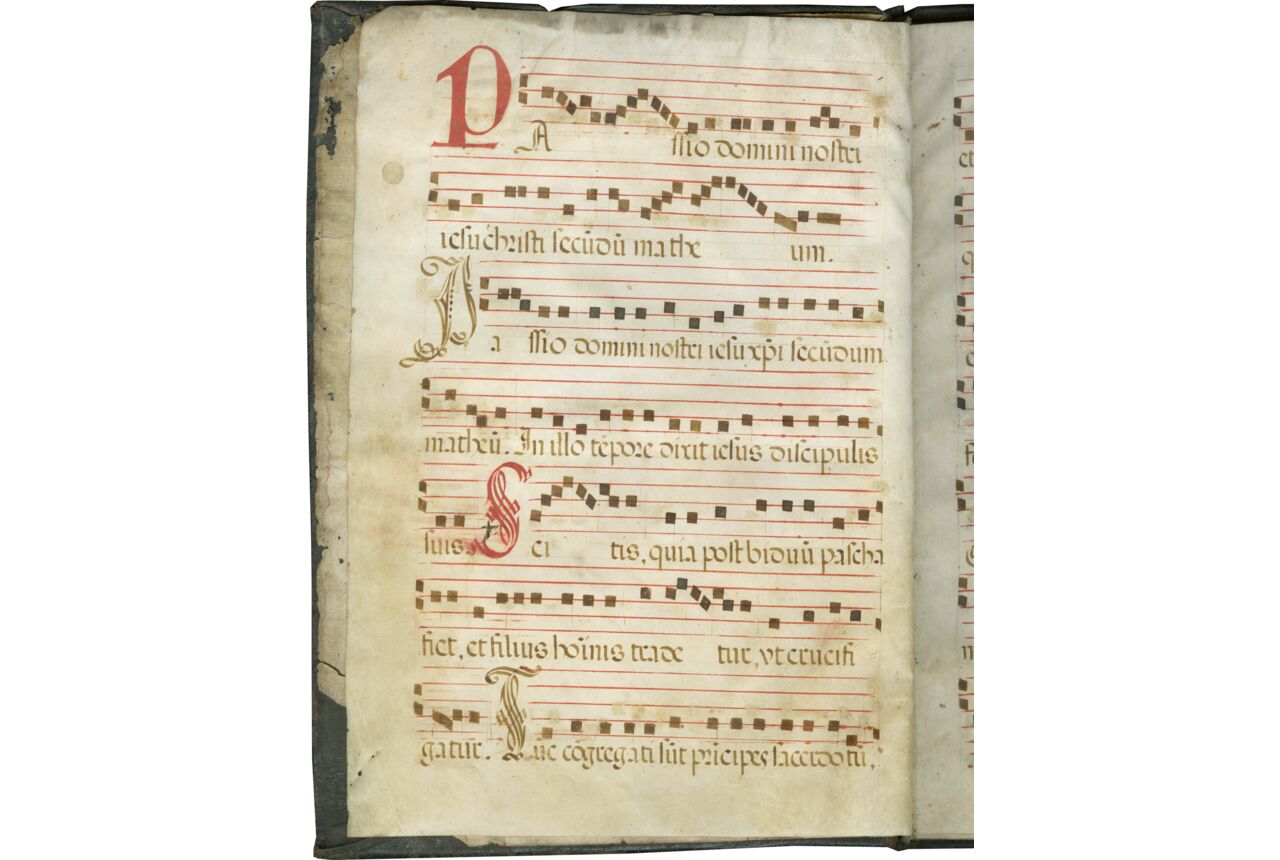 PA ssio domini nostri
iesu christi secūdū mathe um.
Pa ssio domini nostri iesu xp̄i secūdum
matheū. In illo tēpore dixit iesus discipulis
suis. Sci tis, quia post biduū pascha
fiet, et filius hoīnis trade tur, vt crucifi
gatur. Tūc cōgregati sūt prīcipes sacerdotū,